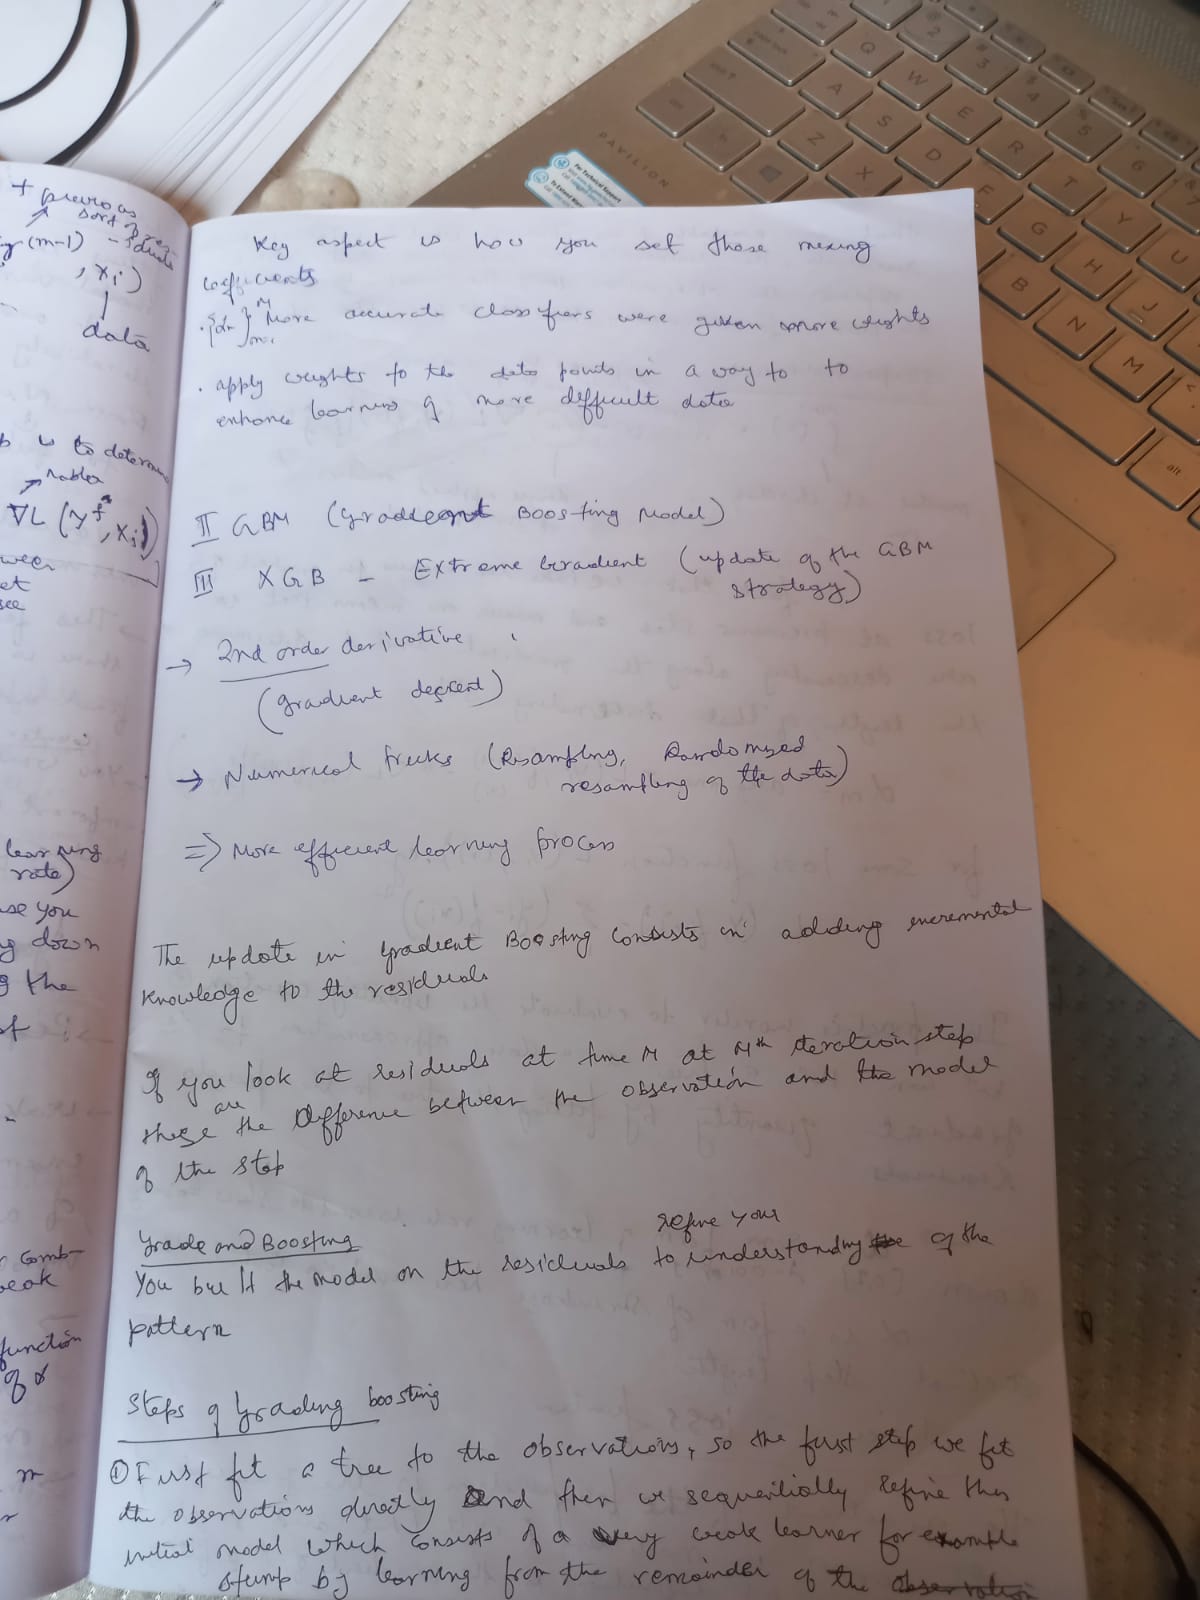 + previous
sort of res
g(m-1) - iduals
, xi)
data
b is to determin
nabla
∇L (y f*, xi)
ween
et
see
learning
rate)
se you
g down
g the
of
r Comb-
eak
function
of α
m
Key aspect is how you set those mixing
coefficients
. {αm}
M
m=1
More accurate classifiers were given more weights
. apply weights to the data points in a way to to
enhance learning of more difficult data
II GBM (Gradient Boosting Model)
III XGB - Extreme Gradient (update of the GBM
strategy)
→ 2nd order derivative
(gradient descent)
→ Numerical tricks (Resampling, Randomized
resampling of the data)
⇒ More efficient learning process
The update in Gradient Boosting consists in adding incremental
knowledge to the residuals
If you look at residuals at time M at Mth iteration step
these are the Difference between the observation and the model
of the step
Grade and Boosting
You built the model on the residuals to refine your understanding the of the
pattern
Steps of Grading boosting
① First fit a tree to the observations, so the first step we fit
the observations directly and then we sequentially refine this
initial model which consists of a very weak learner for example
stump by learning from the remainder of the observation
PAVILION
For Technical Support
Q
W
E
R
T
Y
U
A
S
D
F
G
H
J
Z
X
B
N
M
2
3
4
5
6
7
alt